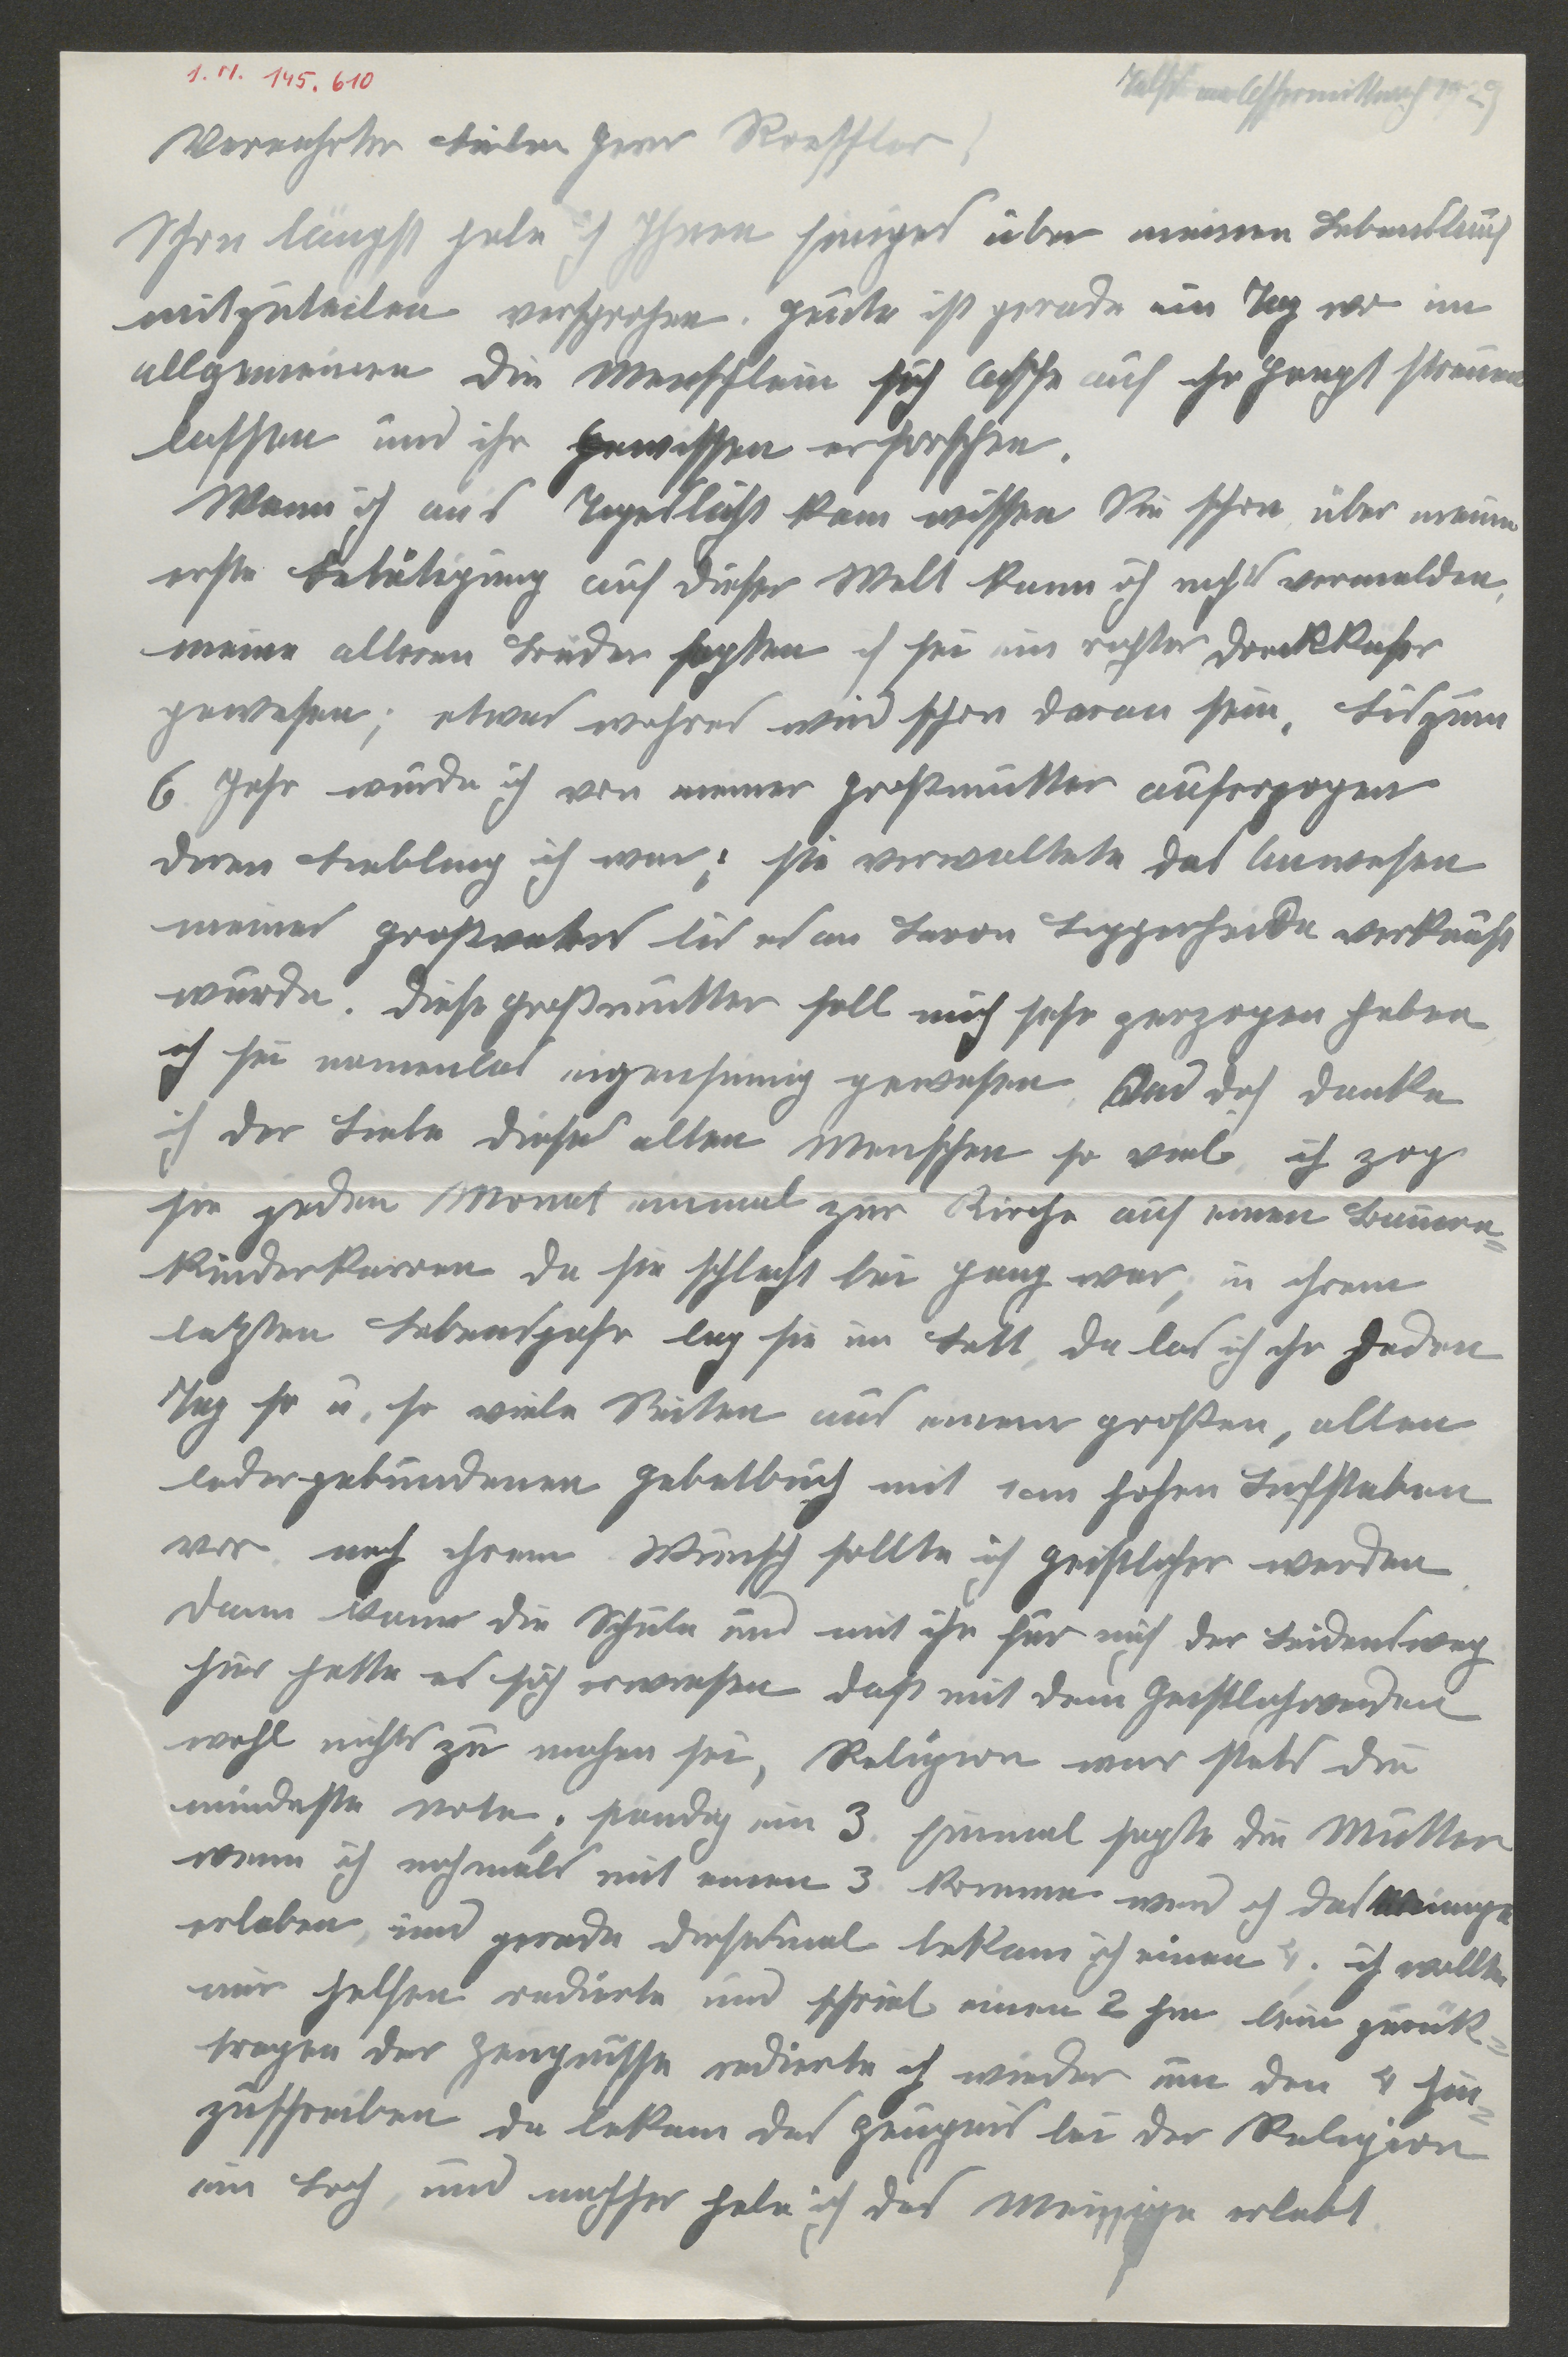 1. N. 145.610
Aschermittwoch 1929
Verehrter lieber Herr Roessler!
Schon längst habe ich Ihnen einiges über meinen Lebenslauf
mitzuteilen versprochen. Heute ist gerade ein Tag wo im
allgemeinen die Menschlein sich Asche auf ihr Haupt streuen
lassen und ihr Gewissen erforschen.
Wann ich ans Tageslicht kam wissen Sie schon über meine
erste Betätigung auf dieser Welt kann ich nichts vermelden,
meine älteren Brüder sagten ich sei ein rechter Dreckkäfer
gewesen; etwas wahres wird schon daran sein. Bis zum
6. Jahr wurde ich von meiner Großmutter auferzogen
deren Liebling ich war; sie verwaltete das Anwesen
meines Großvaters bis es an Baron Lipperheide verkauft
wurde. Diese Großmutter soll mich sehr verzogen haben
ich sei namenlos eigensinnig gewesen. Und doch danke
ich der Liebe dieses alten Menschen so viel, ich zog
sie jeden Monat einmal zur Kirche auf einen Bauern-
kinderkarren da sie schlecht bei Gang war, in ihrem
letzten Lebensjahr lag sie im Bett, da las ich ihr jeden
Tag so u. so viele Seiten aus einem großen, alten
ledergebundenen Gebetbuch mit 1 cm hohen Buchstaben
vor, nach ihrem Wunsch sollte ich Geistlicher werden.
Dann kam die Schule und mit ihr für mich der Leidensweg
hier hatte es sich erwiesen daß mit dem Geistlichwerden
wohl nichts zu machen sei, Religion war stets die
mindeste Note; ständig ein 3. Einmal sagte die Mutter
wenn ich nochmals mit einen 3 komme werd ich das meinige
erleben, und gerade diesesmal bekam ich einen 4. ich wollte
mir helfen radierte und schrieb einen 2 hin beim zurük-
tragen der Zeugnisse radierte ich wieder um den 4 hin-
zuschreiben da bekam das Zeugnis bei der Religion
ein Loch, und nachher habe ich das Meinige erlebt.